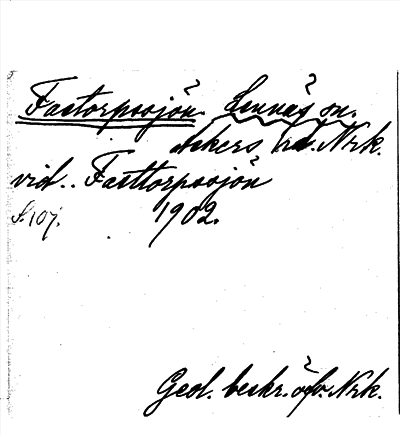 Fastorpssjön. Lennäs sn.
Askers hd. Nrk.
vid.. Fasttorpssjön
S. 107. 1902.
Geol. beskr. öfv. Nrk.